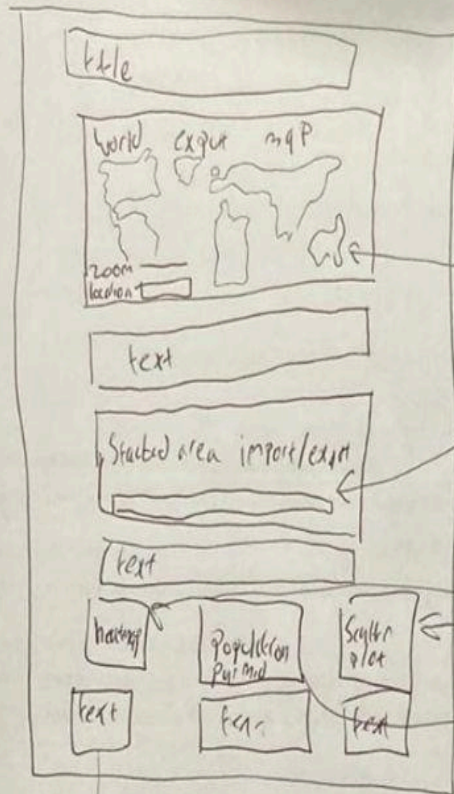 title
World export map
zoom
location
text
Stacked area import/export
text
heatmap
population
pyramid
Scatter
plot
text
text
text